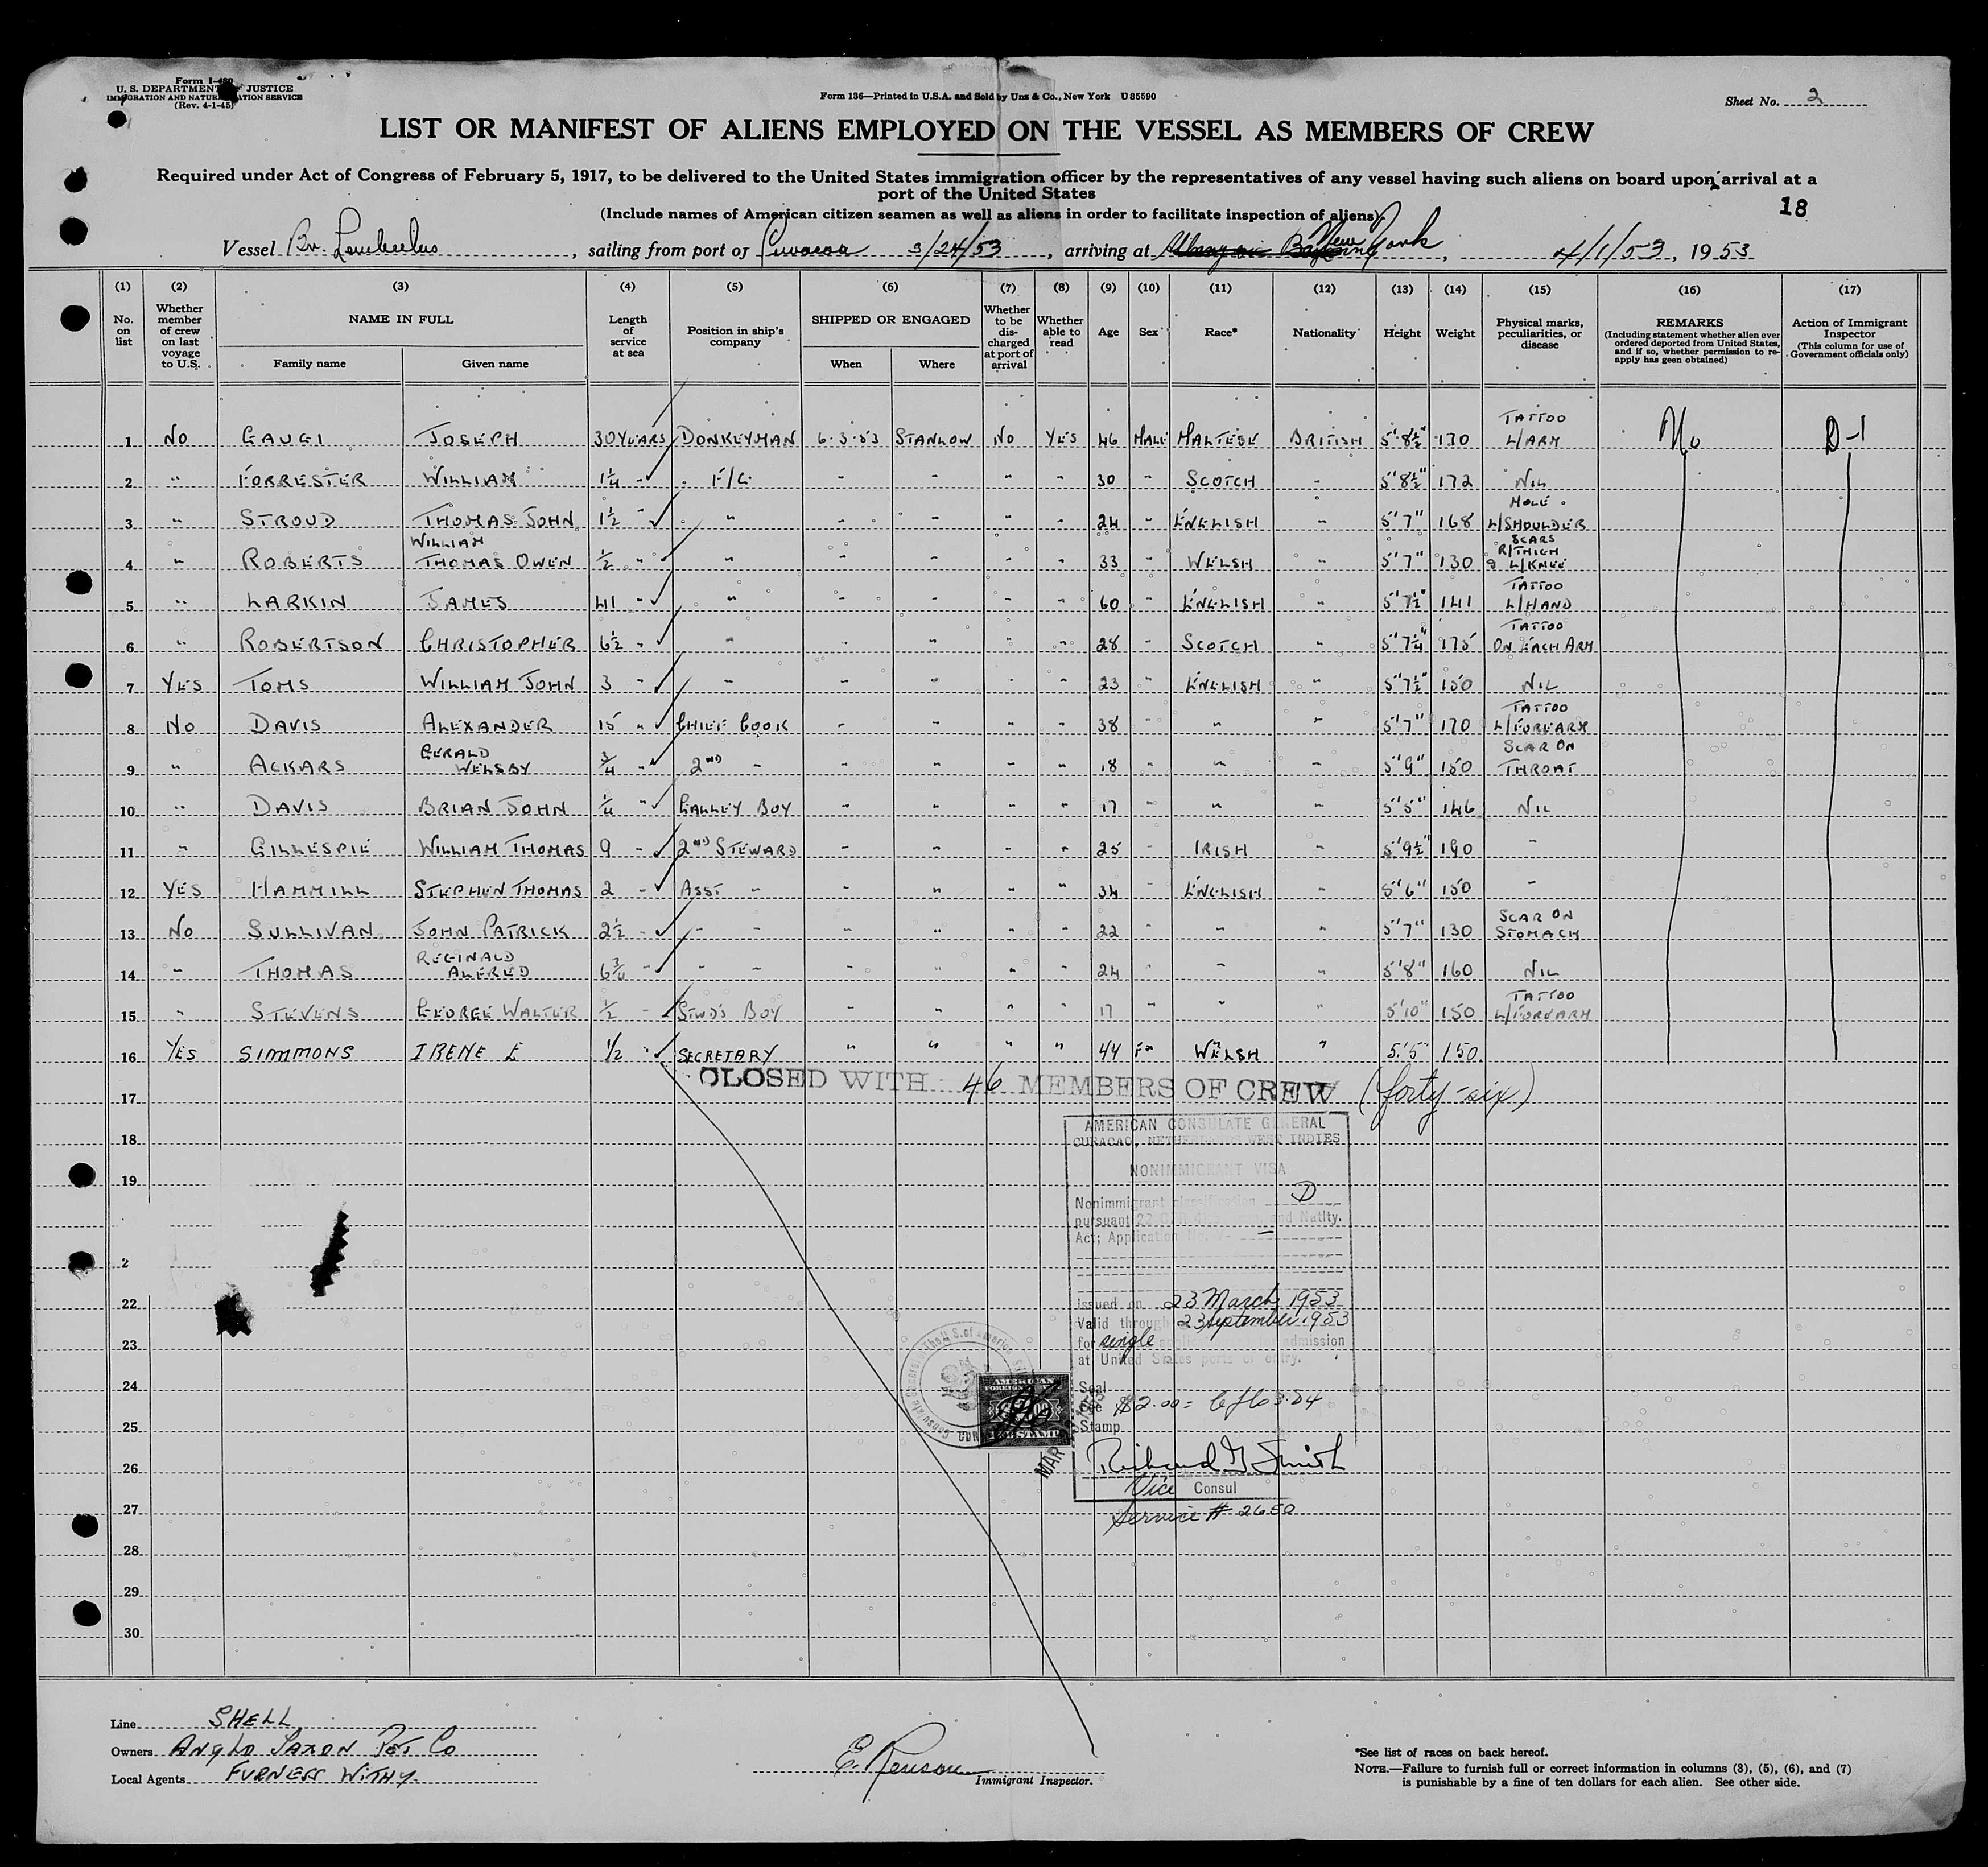 Form I-480
U. S. DEPARTMENT OF JUSTICE
IMMIGRATION AND NATURALIZATION SERVICE
(Rev. 4-1-45)
Form 136—Printed in U.S.A. and Sold by Unz & Co., New York U 85590
Sheet No. 2
LIST OR MANIFEST OF ALIENS EMPLOYED ON THE VESSEL AS MEMBERS OF CREW
Required under Act of Congress of February 5, 1917, to be delivered to the United States immigration officer by the representatives of any vessel having such aliens on board upon arrival at a
port of the United States
(Include names of American citizen seamen as well as aliens in order to facilitate inspection of aliens)
18
Vessel Br. , sailing from port of Curacao 3/24/53, arriving at New York, 4/1/53, 1953
(1) (2) (3) (4) (5) (6) (7) (8) (9) (10) (11) (12) (13) (14) (15) (16) (17)
No. on list
Whether member of crew on last voyage to U.S.
NAME IN FULL
Family name Given name
Length of service at sea
Position in ship's company
SHIPPED OR ENGAGED
When Where
Whether to be discharged at port of arrival
Whether able to read
Age Sex Race* Nationality Height Weight
Physical marks, peculiarities, or disease
REMARKS
(Including statement whether alien ever ordered deported from United States, and if so, whether permission to re-apply has geen obtained)
Action of Immigrant Inspector
(This column for use of Government officials only)
1 NO GAUCI JOSEPH 30 YEARS DONKEYMAN 6.3.53 STANLOW NO YES 46 MALE MALTESE BRITISH 5'8½" 130 TATTOO L/ARM No D-1
2 " FORRESTER WILLIAM 1¼ " F/G. " " " " 30 " SCOTCH " 5'8½" 172 NIL
3 " STROUD THOMAS JOHN 1½ " " " " " " 24 " ENGLISH " 5'7" 168 MOLE L/SHOULDER
4 " ROBERTS WILLIAM THOMAS OWEN ½ " " " " " " 33 " WELSH " 5'7" 130 SCARS R/THIGH & L/KNEE
5 " LARKIN JAMES 41 " " " " " " 60 " ENGLISH " 5'7½" 141 TATTOO L/HAND
6 " ROBERTSON CHRISTOPHER 6½ " " " " " " 28 " SCOTCH " 5'7¼" 175 TATTOO ON EACH ARM
7 YES TOMS WILLIAM JOHN 3 " " " " " " 23 " ENGLISH " 5'7½" 150 NIL
8 NO DAVIS ALEXANDER 15 " CHIEF COOK " " " " 38 " " " 5'7" 170 TATTOO L/FOREARM
9 " ACKARS GERALD WELSBY ¾ " 2ND " " " " " 18 " " " 5'9" 150 SCAR ON THROAT
10 " DAVIS BRIAN JOHN ¼ " GALLEY BOY " " " " 17 " " " 5'5" 146 NIL
11 " GILLESPIE WILLIAM THOMAS 9 " 2ND STEWARD " " " " 25 " IRISH " 5'9½" 190 "
12 YES HAMMILL STEPHEN THOMAS 2 " ASST " " " " " 34 " ENGLISH " 5'6" 150 "
13 NO SULLIVAN JOHN PATRICK 2½ " " " " " " " 22 " " " 5'7" 130 SCAR ON STOMACH
14 " THOMAS REGINALD ALFRED 6¾ " " " " " " " 24 " " " 5'8" 160 NIL
15 " STEVENS GEORGE WALTER ½ " STWD'S BOY " " " " 17 " " " 5'10" 150 TATTOO L/FOREARM
16 YES SIMMONS IRENE E ½ " SECRETARY " " " " 44 Fm WELSH " 5'5" 150
CLOSED WITH 46 MEMBERS OF CREW (forty-six)
17
18
19
2
22
23
24
25
26
27
28
29
30
AMERICAN CONSULATE GENERAL
CURACAO, NETHERLANDS WEST INDIES
NONIMMIGRANT VISA
Nonimmigrant classification D
pursuant 22 CFR and Natlty.
Act; Application No. V- —
Issued on 23 March, 1953
Valid through 23 September 1953
for single admission
at United States ports of entry.
Seal
Fee $2.00 =
Stamp
AMERICAN FOREIGN
STAMP
MAR
Richard G Smith
Vice Consul
Service # 2650
Line SHELL
Owners ANGLO SAXON PET CO
Local Agents FURNESS WITHY.
E. Renson
Immigrant Inspector.
*See list of races on back hereof.
NOTE.—Failure to furnish full or correct information in columns (3), (5), (6), and (7)
is punishable by a fine of ten dollars for each alien. See other side.